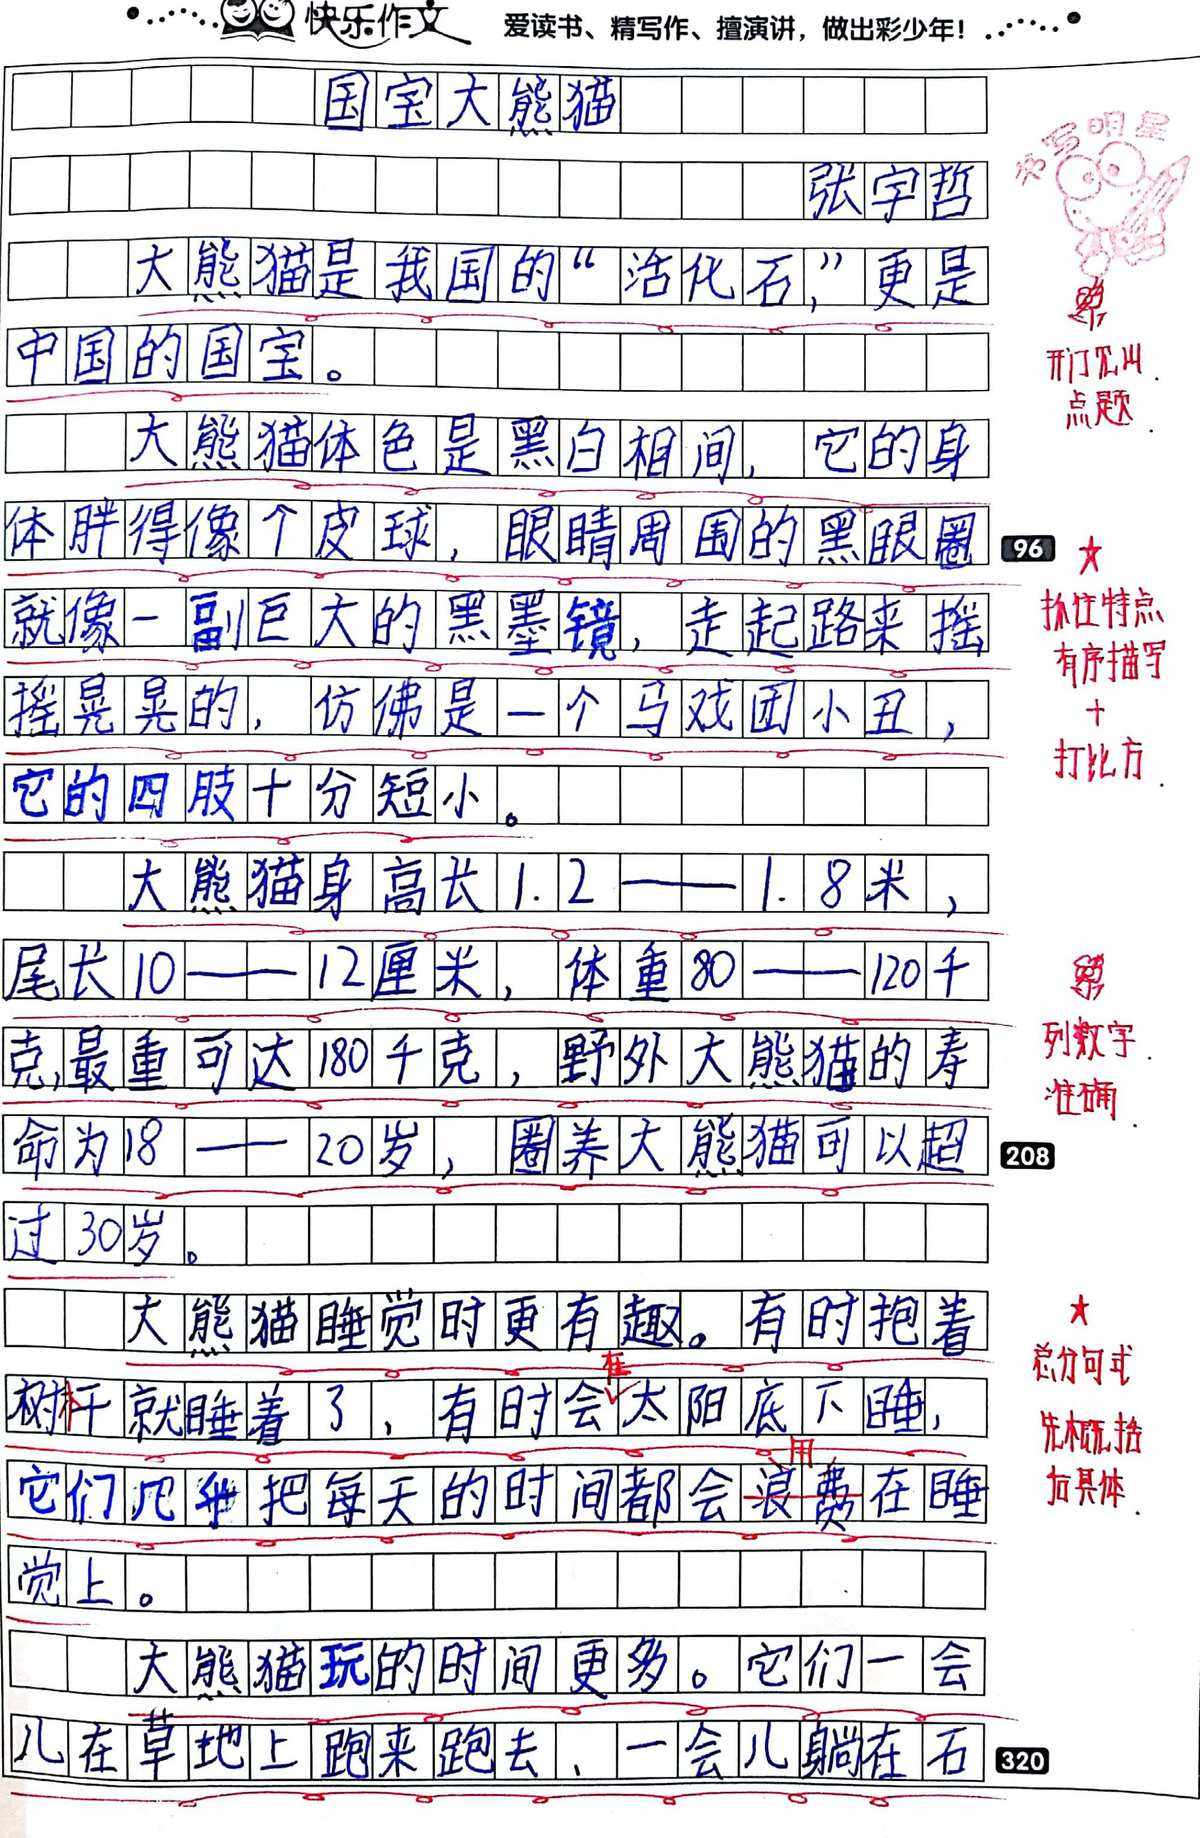 快乐作文 爱读书、精写作、擅演讲，做出彩少年！
国宝大熊猫
张宇哲
书写明星
大熊猫是我国的“活化石，”更是
中国的国宝。
开门见山
点题
大熊猫体色是黑白相间，它的身
体胖得像个皮球，眼睛周围的黑眼圈
96
就像一副巨大的黑墨镜，走起路来摇
摇晃晃的，仿佛是一个马戏团小丑，
它的四肢十分短小。
抓住特点
有序描写
+
打比方
大熊猫身高长1.2——1.8米，
尾长10——12厘米，体重80——120千
克，最重可达180千克，野外大熊猫的寿
命为18——20岁，圈养大熊猫可以超
208
过30岁。
列数字
准确
大熊猫睡觉时更有趣。有时抱着
树杆就睡着了，有时会在太阳底下睡，
它们几乎把每天的时间都会浪费用在睡
觉上。
总分句式
先概括
后具体
大熊猫玩的时间更多。它们一会
儿在草地上跑来跑去，一会儿躺在石
320